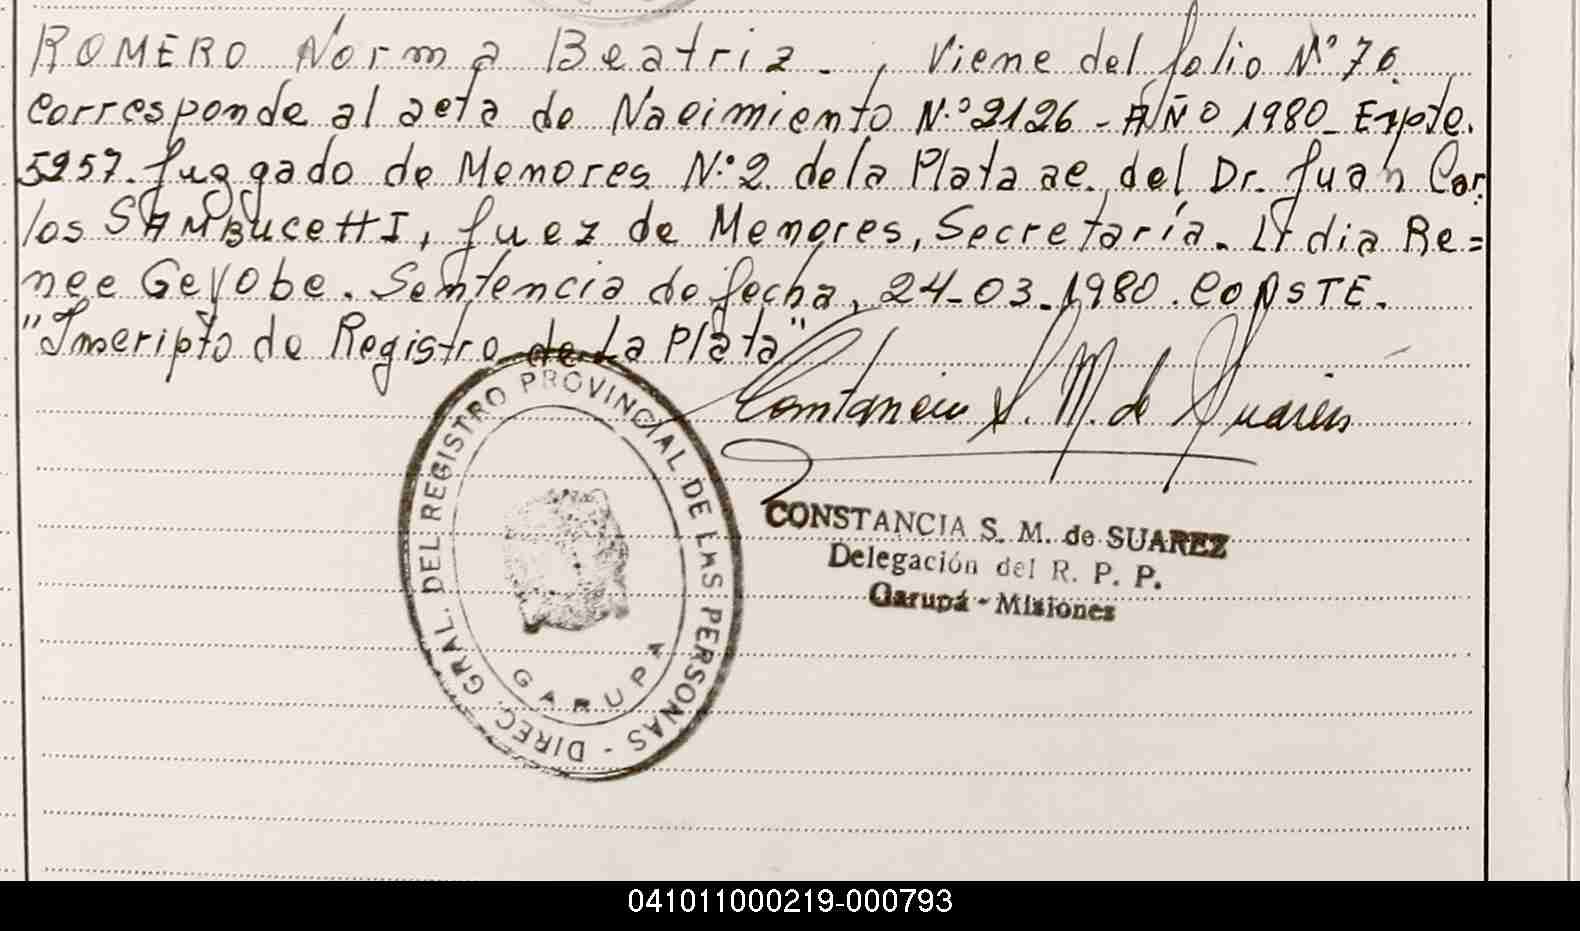 ROMERO Norma Beatriz. , Viene del folio Nº 70.
Corresponde al acta de Nacimiento N.º 2126 - AÑO 1980_ Expte.
5957. Juzgado de Menores N.º 2. de la Plata ae. del, Dr. Juan Car
los SAMBUCETTI, Juez de Menores, Secretaría. Lidia Re=
nee Geyobe. Sentencia de fecha, 24-03-1980. CONSTE.
"Inscripto de Registro de La Plata"
Constancia S. M. de Suárez
DIREC. GRAL. DEL REGISTRO PROVINCIAL DE LAS PERSONAS -
GARUPA
CONSTANCIA S. M. de SUAREZ
Delegación del R. P. P.
Garupá - Misiones
041011000219-000793